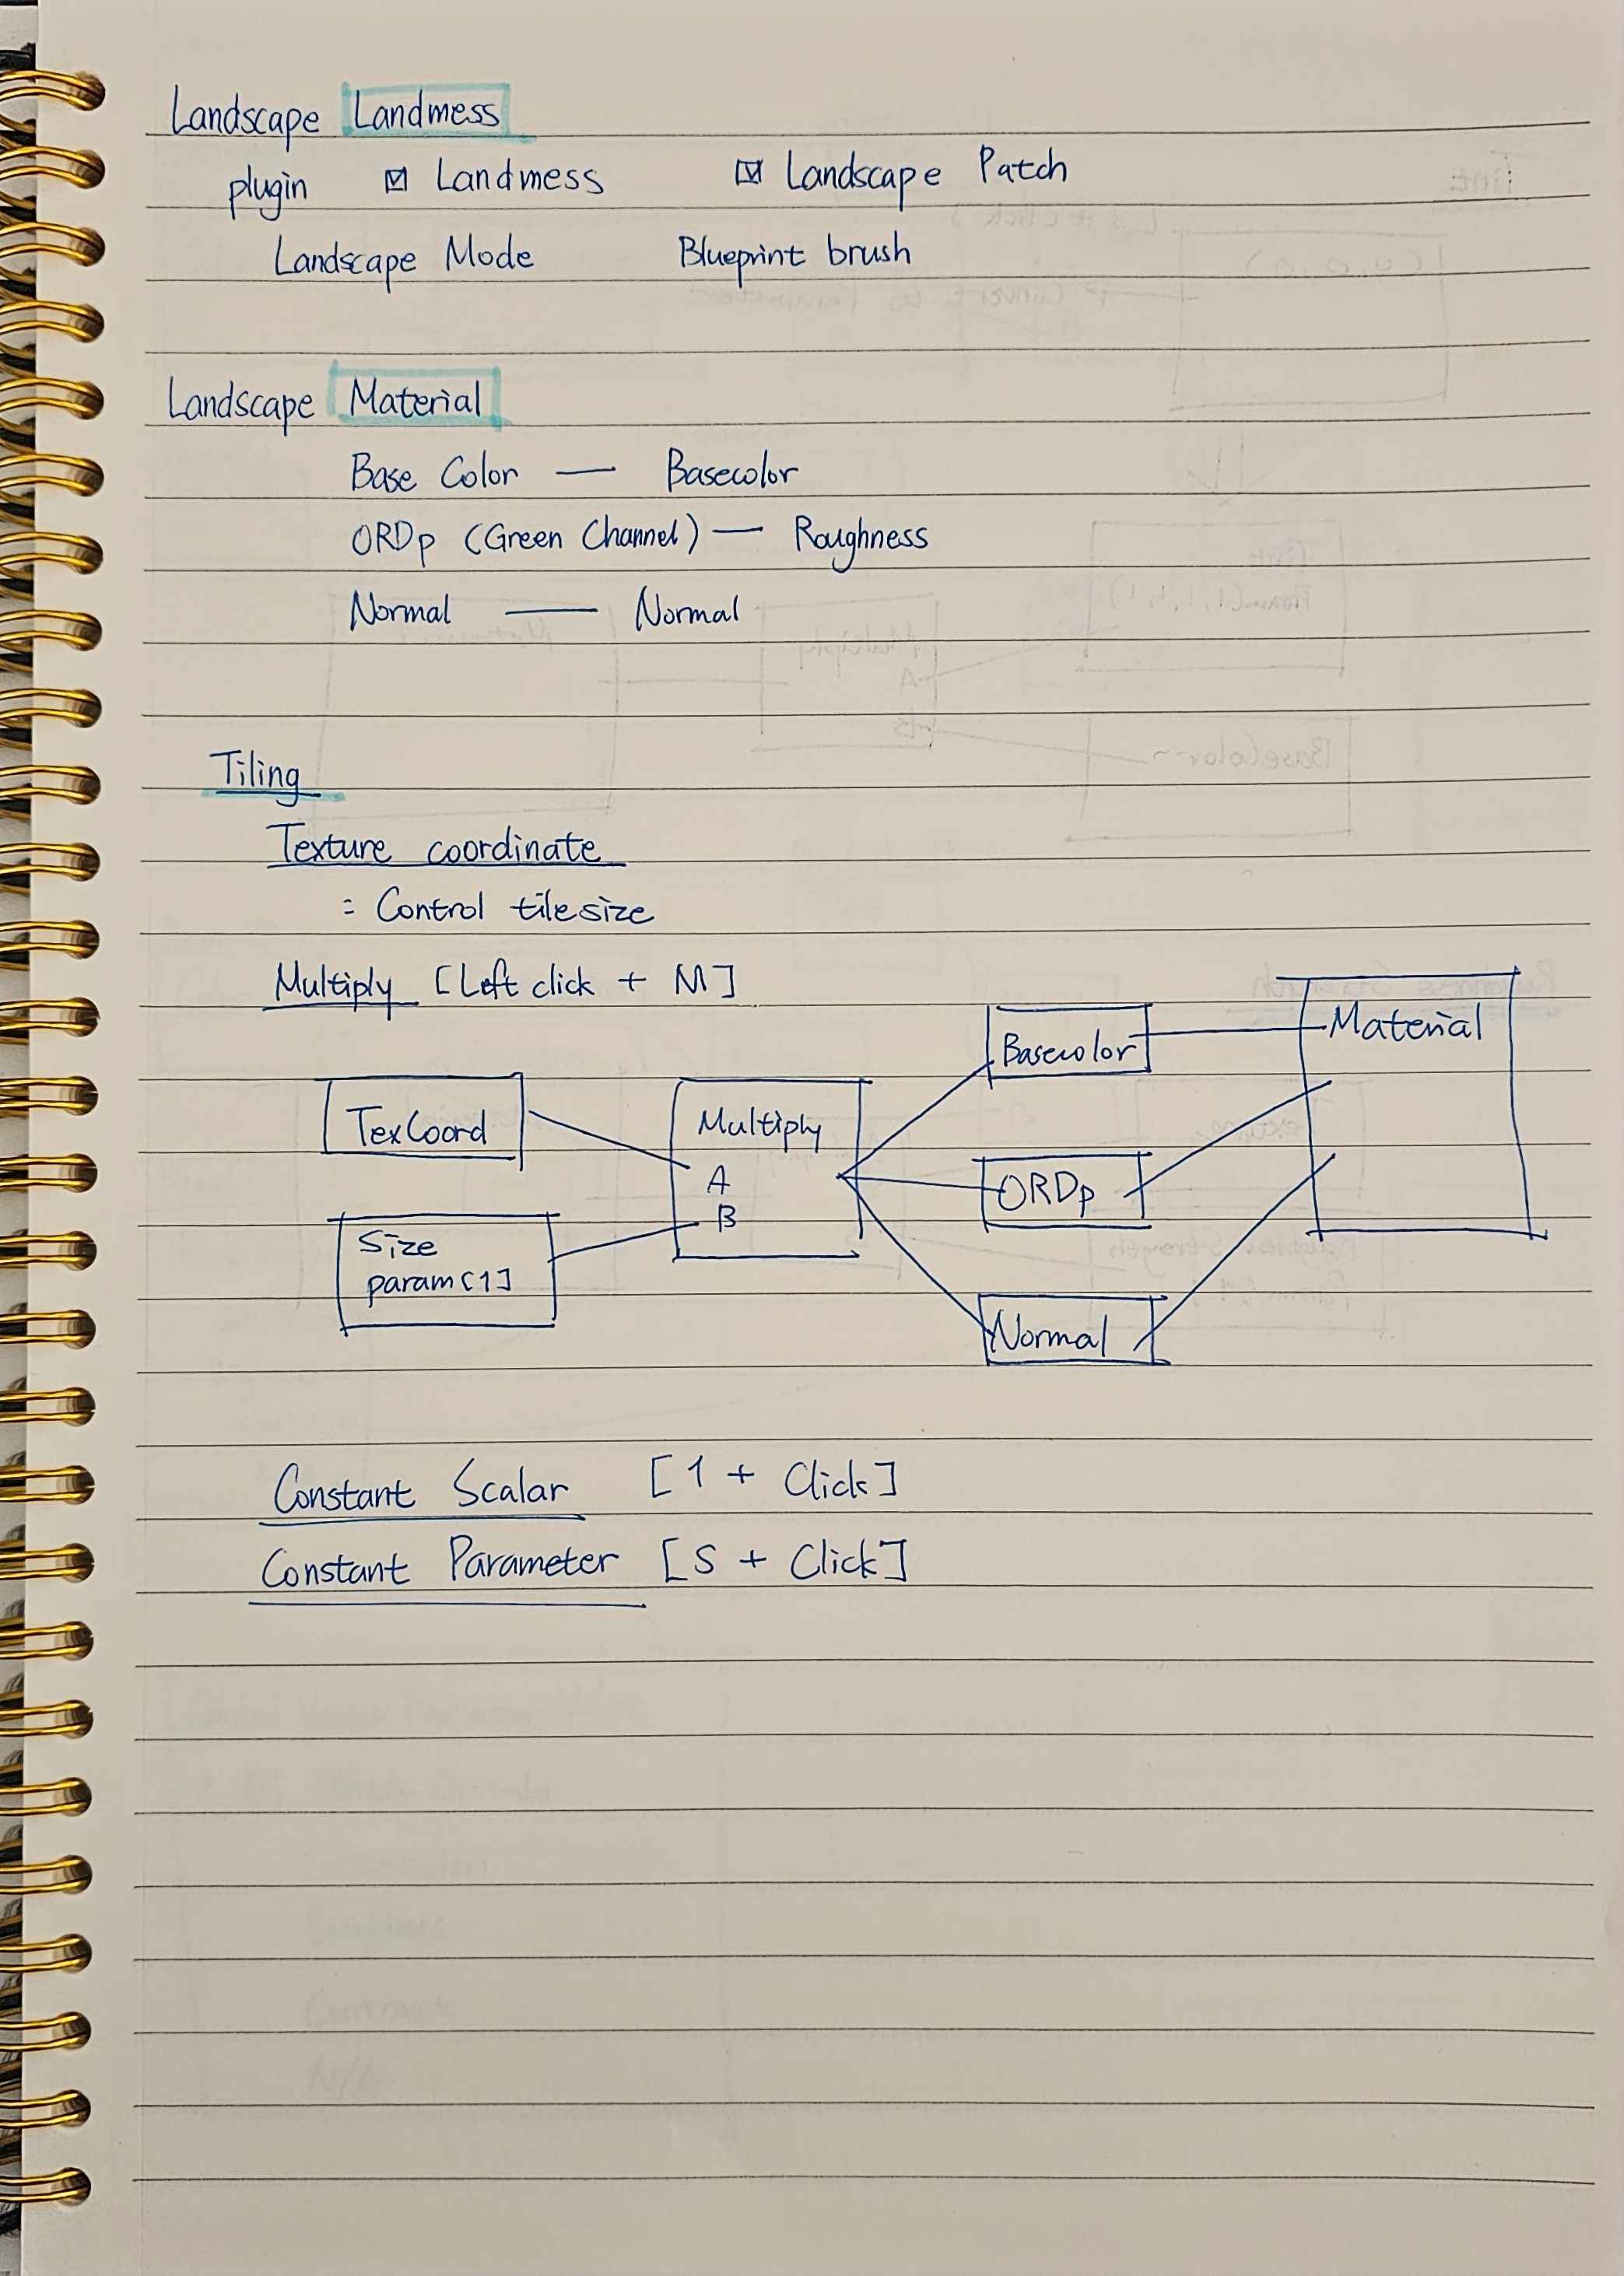 Landscape Landmess
plugin ☑ Landmess ☑ Landscape Patch
Landscape Mode Blueprint brush
Landscape Material
Base Color — Basecolor
ORDp (Green Channel) — Roughness
Normal — Normal
Tiling
Texture coordinate
= Control tilesize
Multiply [Left click + M]
Basecolor
Material
TexCoord
Multiply
A
B
ORDp
Size
param[1]
Normal
Constant Scalar [1 + Click]
Constant Parameter [S + Click]